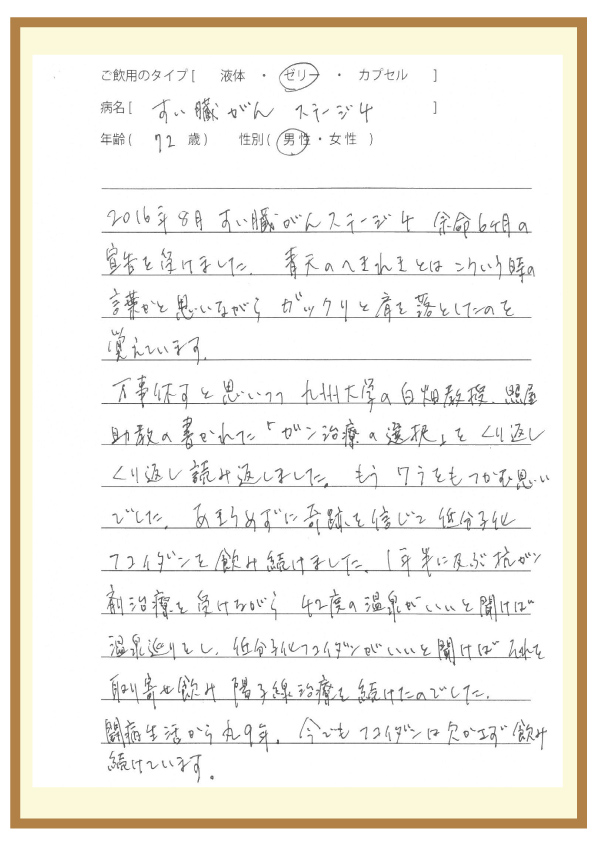 ご飲用のタイプ[ 液体 ・ ゼリー ・ カプセル ]
病名[ すい臓がん ステージ4 ]
年齢( 72 歳) 性別( 男性・女性 )
2016年8月 すい臓がんステージ4 余命6ヶ月の
宣告を受けました。 青天のへきれきとは こういう時の
言葉かと思いながら ガックリと肩を落としたのを
覚えています。
万事休すと思いつつ 九州大学の白畑教授、照屋
助教の書かれた「ガン治療の選択」を くり返し
くり返し読み返しました。 もう ワラをもつかむ思い
でした。 あきらめずに奇跡を信じて 低分子化
フコイダンを飲み続けました。 1年半に及ぶ抗がん
剤治療を受けながら 42度の温泉がいいと聞けば
温泉巡りをし、低分子化フコイダンがいいと聞けば それを
取り寄せ飲み 陽子線治療を続けたのでした。
闘病生活から丸9年。 今でもフコイダンは欠かさず飲み
続けています。